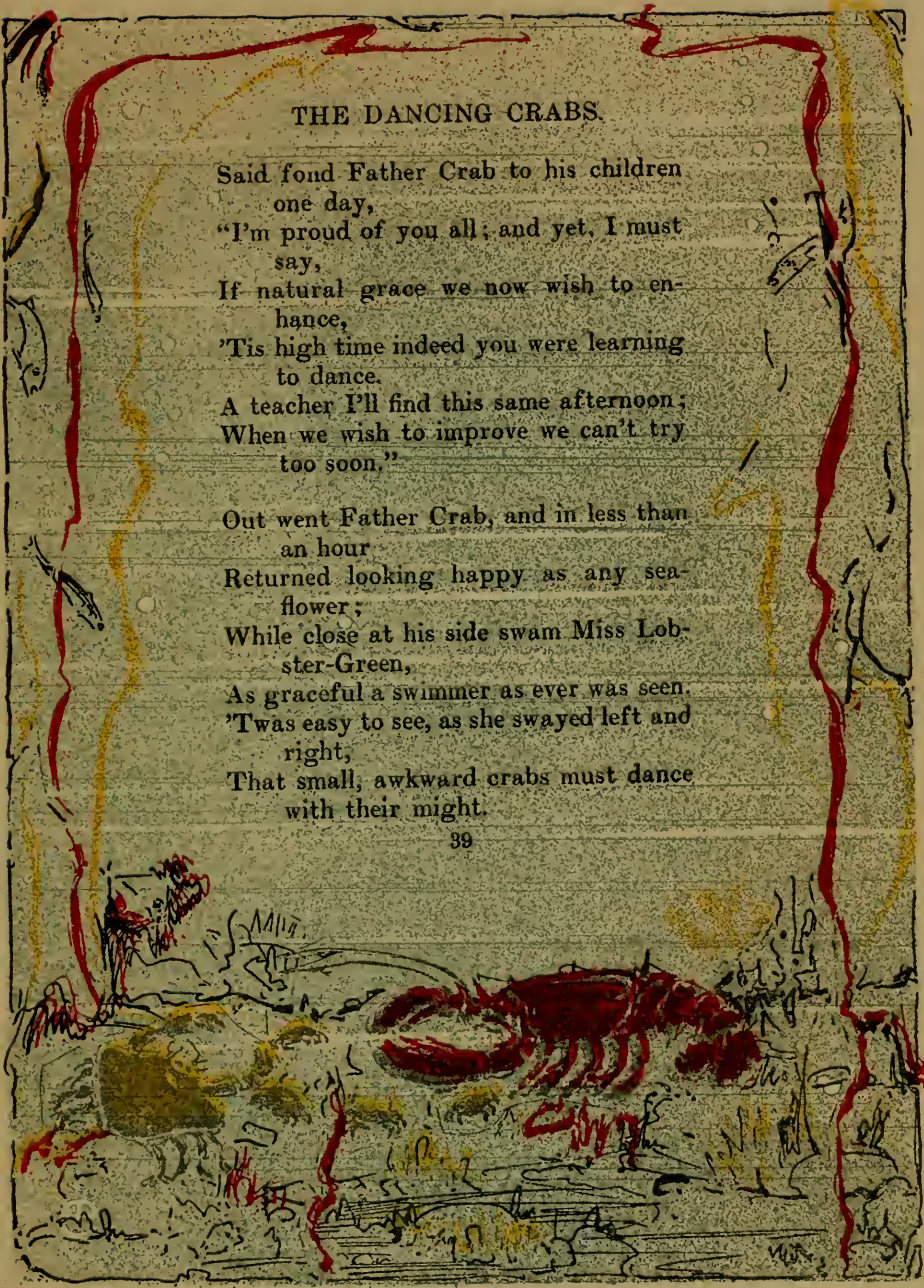 THE DANCING CRABS.
Said fond Father Crab to his children
one day,
“I’m proud of you all; and yet, I must
say,
If natural grace we now wish to en-
hance,
’Tis high time indeed you were learning
to dance.
A teacher I’ll find this same afternoon;
When we wish to improve we can’t try
too soon.”
Out went Father Crab, and in less than
an hour
Returned looking happy as any sea-
flower;
While close at his side swam Miss Lob-
ster-Green,
As graceful a swimmer as ever was seen.
’Twas easy to see, as she swayed left and
right,
That small, awkward crabs must dance
with their might.
39